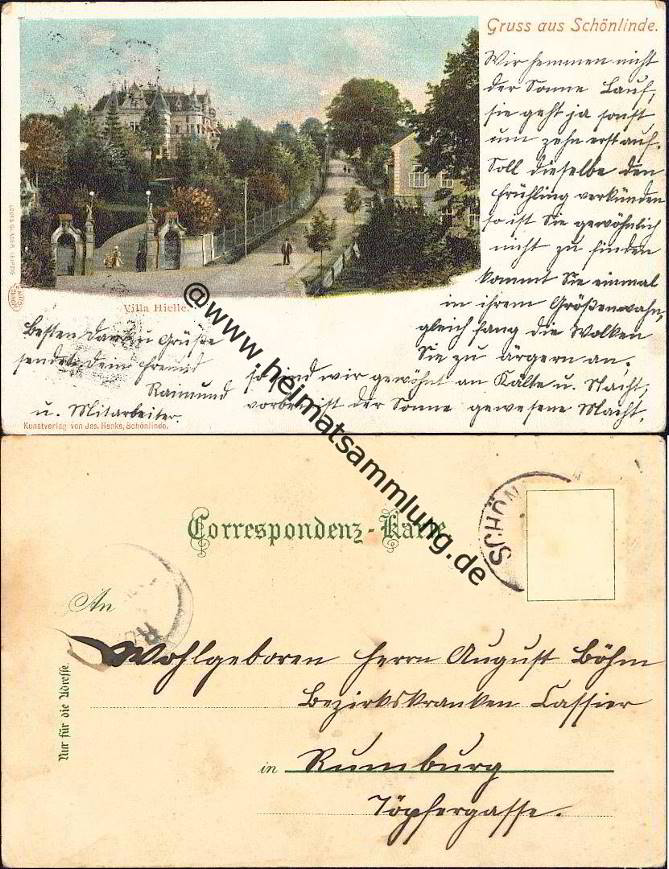 Gruss aus Schönlinde.
Wir hemmen nicht
der Sonne Lauf,
sie geht ja sonst
um zehn erst auf.
Soll dieselbe den
Frühling verkünden
so ist Sie gewöhnlich
nicht zu finden
kommt Sie einmal
in ihrem Größenwahn,
gleich fang die Wolken
Sie zu ärgern an,
so sind wir gewöhnt an Kälte u. Nacht,
vorbei ist der Sonne gewesene Macht.
Villa Hielle.
Besten Grüße
sendet dein Freund
Raimund
u. Mitarbeiter.
Kunstverlag von Jos. Henke, Schönlinde.
@www.heimatsammlung.de
Correspondenz-Karte
SCHÖN
An
Wohlgeboren Herrn August Böhm
Bezirkskranken Cassier
in Rumburg
Töpfergasse.
Nur für die Adresse.